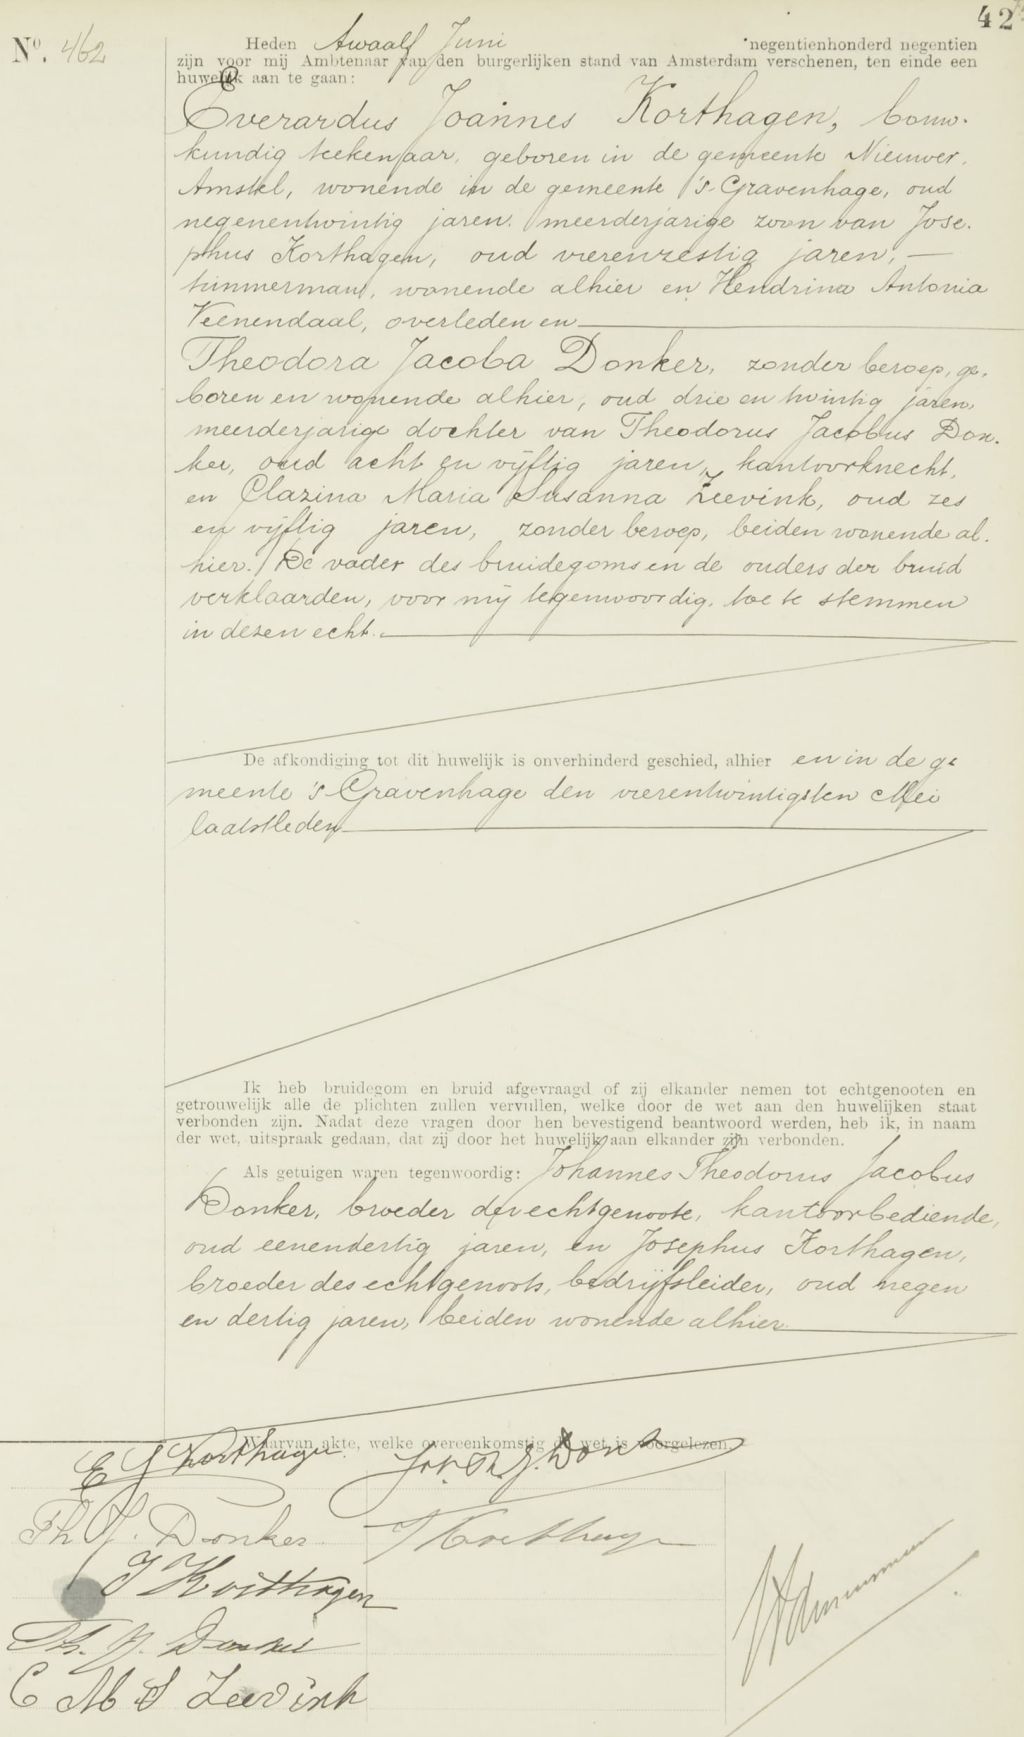 42
No. 462
Heden twaalf Juni negentienhonderd negentien
zijn voor mij Ambtenaar van den burgerlijken stand van Amsterdam verschenen, ten einde een
huwelijk aan te gaan:
Everardus Joannes Korthagen, bouw-
kundig teekenaar, geboren in de gemeente Nieuwer-
Amstel, wonende in de gemeente 's-Gravenhage, oud
negenentwintig jaren, meerderjarige zoon van Jose-
phus Korthagen, oud vierenzestig jaren, —
timmerman, wonende alhier en Hendrina Antonia
Veenendaal, overleden en
Theodora Jacoba Donker, zonder beroep, ge-
boren en wonende alhier, oud drie en twintig jaren,
meerderjarige dochter van Theodorus Jacobus Don-
ker, oud acht en vijftig jaren, kantoorknecht,
en Clazina Maria Susanna Zeevink, oud zes
en vijftig jaren, zonder beroep, beiden wonende al-
hier. / De vader des bruidegoms en de ouders der bruid
verklaarden, voor mij tegenwoordig, toe te stemmen
in dezen echt.
De afkondiging tot dit huwelijk is onverhinderd geschied, alhier en in de ge
meente 's-Gravenhage den vierentwintigsten Mei
laatstleden
Ik heb bruidegom en bruid afgevraagd of zij elkander nemen tot echtgenooten en
getrouwelijk alle de plichten zullen vervullen, welke door de wet aan den huwelijken staat
verbonden zijn. Nadat deze vragen door hen bevestigend beantwoord werden, heb ik, in naam
der wet, uitspraak gedaan, dat zij door het huwelijk aan elkander zijn verbonden.
Als getuigen waren tegenwoordig: Johannes Theodorus Jacobus
Donker, broeder der echtgenoote, kantoorbediende,
oud eenendertig jaren, en Josephus Korthagen,
broeder des echtgenoots, bedrijfsleider, oud negen
en dertig jaren, beiden wonende alhier
Waarvan akte, welke overeenkomstig de wet is voorgelezen.
E J Korthagen. Joh. Th. J. Donker
Th J. Donker. J Korthagen
J Korthagen
Th. J. Donker
C M S Zeevink